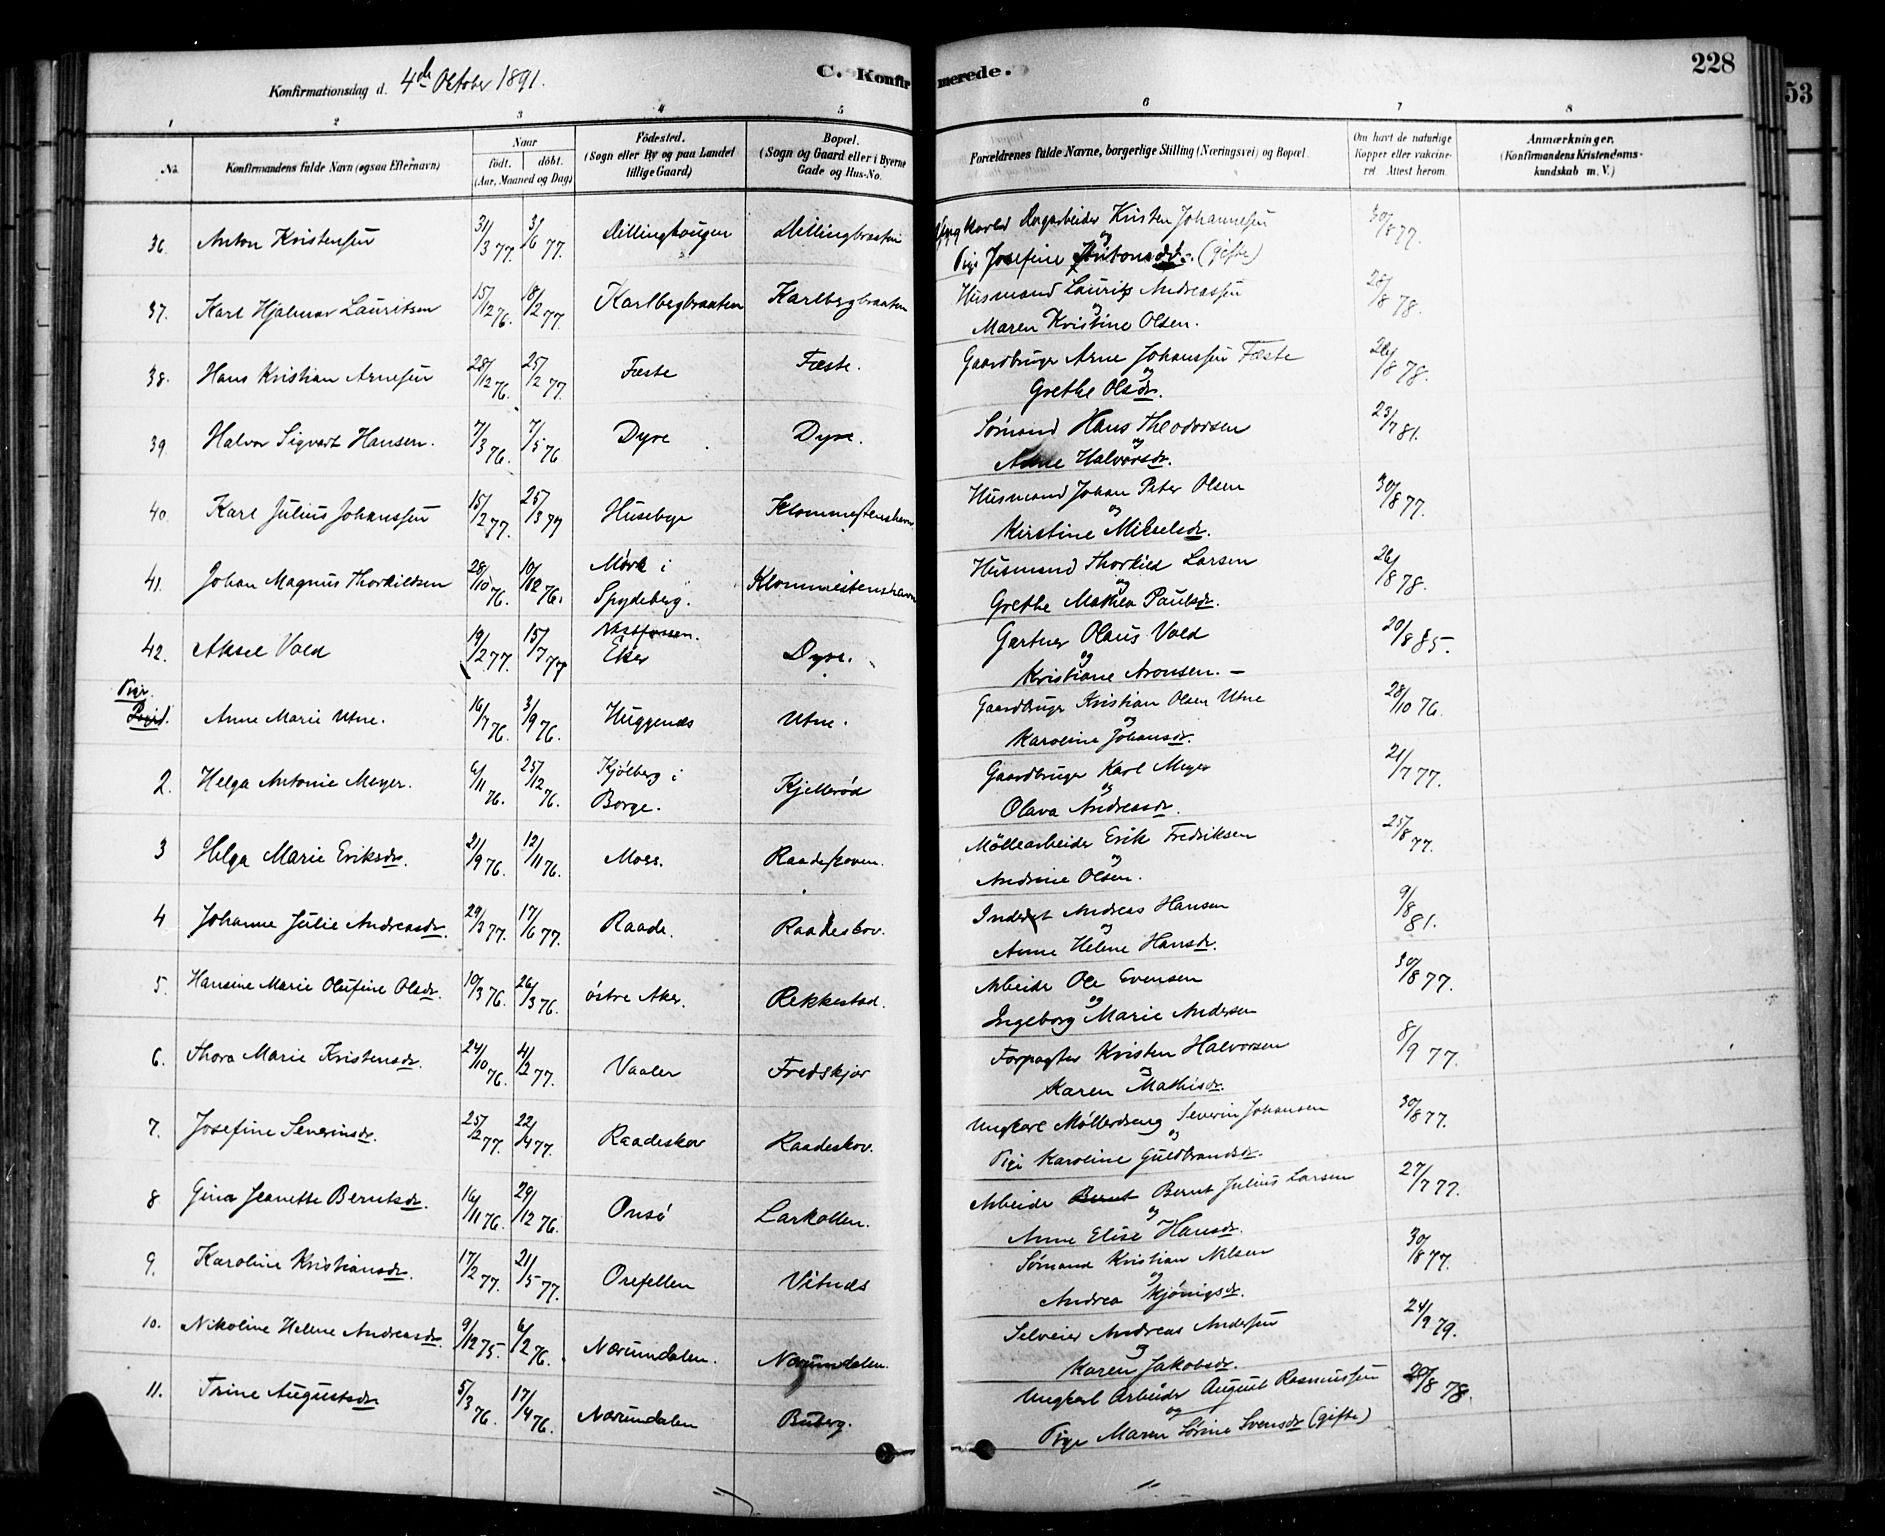 228
53
C. Konfirmerede.
Konfirmationsdag d. 4de October 1891.
1 2 3 4 5 6 7 8
No. Konfirmandens fulde Navn (ogsaa Efternavn) Naar födt. döbt. (Aar, Maaned og Dag) Födested. (Sogn eller By og paa Landet tillige Gaard) Bopæl. (Sogn og Gaard eller i Byerne Gade og Hus-No. Forældrenes fulde Navne, borgerlige Stilling (Næringsvei) og Bopæl. Om havt de naturlige Kopper eller vakcineret. Attest herom. Anmærkninger. (Konfirmandens Kristendomskundskab m. V.)
36. Anton Kristensen 31/3 77. 3/6 77. Dillinghaugen Dillingbraaten Ungkarl Dagarbeider Kristen Johannesen 30/8 77.
og Pige Josefine Antonsdr. (gifte)
37. Karl Hjalmar Lauritsen 15/12 76. 18/2 77. Karlbergbraaten Karlbergbraaten Husmand Laurits Andreassen 28/8 78.
og Maren Kristine Olsen.
38. Hans Kristian Arnesen 28/12 76. 25/2 77. Fæste Fæste. Gaardbruger Arne Johanssen Fæste 26/8 78.
og Grethe Olsdr.
39. Halvor Sigvart Hansen. 7/3 76. 7/5 76. Dyre Dyre. Sømand Hans Theodorsen 23/7 81.
og Anne Halvorsdr.
40. Karl Julius Johanssen 15/2 77. 25/3 77 Huseby Klommestenshavn Husmand Johan Peter Olsen 30/8 77.
og Kirstine Mikkelsdr.
41. Johan Magnus Thorkildsen 28/10 76. 10/12 76. Mørk i Klommestenshavn Husmand Thorkild Larsen 26/8 78.
Spydeberg. og Grethe Mathea Paulsdr.
42. Aksel Vold 19/2 77. 15/7 77 Vestfossen. Eker Dyre. Gartner Olaus Vold 20/8 85.
og Kristiane Aronsen. –
Piger.
Anne Marie Utne. 16/7 76. 3/9 76. Huggenæs Utne. Gaardbruger Kristian Olsen Utne 28/10 76.
og Karoline Johansdr.
2. Helga Antonie Meyer. 6/11 76. 25/12 76. Kjølberg i Kjellerød Gaardbruger Karl Meyer 21/7 77.
Borge. og Olava Andreasdr.
3 Helga Marie Eriksdr. 21/9 76. 12/11 76. Moss. Raadeskoven. Møllearbeider Erik Fredriksen 25/8 77.
og Andrine Olsen.
4 Johanne Julie Andreasdr. 29/3 77. 17/6 77. Raade. Raadeskov. Inderst Andreas Hansen 9/8 81.
og Anne Helene Hansdr.
5. Hansine Marie Olufine Olsdr. 10/3 76. 26/3 76. østre Aker. Rekkestad. Arbeider Ole Evensen 30/8 77.
og Ingeborg Marie Andersen
6. Thora Marie Kristensdr. 24/10 76. 4/2 77. Vaaler Fredskjær Forpagter Kristen Halvorsen 8/9 77.
og Karen Mathisdr.
7. Josefine Severinsdr. 25/2 77. 22/4 77. Raadeskov Raadeskov. Ungkarl Møllerdreng Severin Johansen 30/8 77.
og Pige Karoline Guldbrandsdr.
8 Gina Jeanette Berntsdr. 16/11 76. 29/12 76. Onsø Larkollen. Arbeider Bernt Bernt Julius Larsen 27/7 77.
og Anne Elise Hansdr.
9. Karoline Kristiansdr. 17/2 77. 21/5 77. Orefellen Vitnæs Sømand Kristian Nilsen 30/8 77.
og Andrea Kjønigsdr.
10. Nikoline Helene Andreasdr. 9/12 75. 6/2 76. Nærumdalen. Nærumdalen. Selveier Andreas Andersen 24/9 79.
og Karen Jakobsdr.
11. Trine Augustsdr 5/3 76. 17/4 76. Nærumdalen Buberg. Ungkarl Arbeider August Rasmussen 20/8 78.
og Pige Maren Sørine Svensdr (gifte)